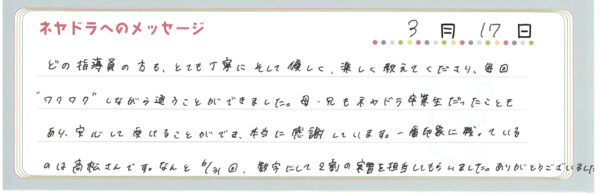 ネヤドラへのメッセージ
3月17日
どの指導員の方も、とても丁寧にそして優しく、楽しく教えてくださり、毎回
"ワクワク"しながら通うことができました。母・兄もネヤドラ卒業生だったことも
あり、安心して受けることができ、本当に感謝しています。一番印象に残っている
のは高松さんです。なんと6/31回、数字にして2割の実習を担当してもらいました。ありがとうございました